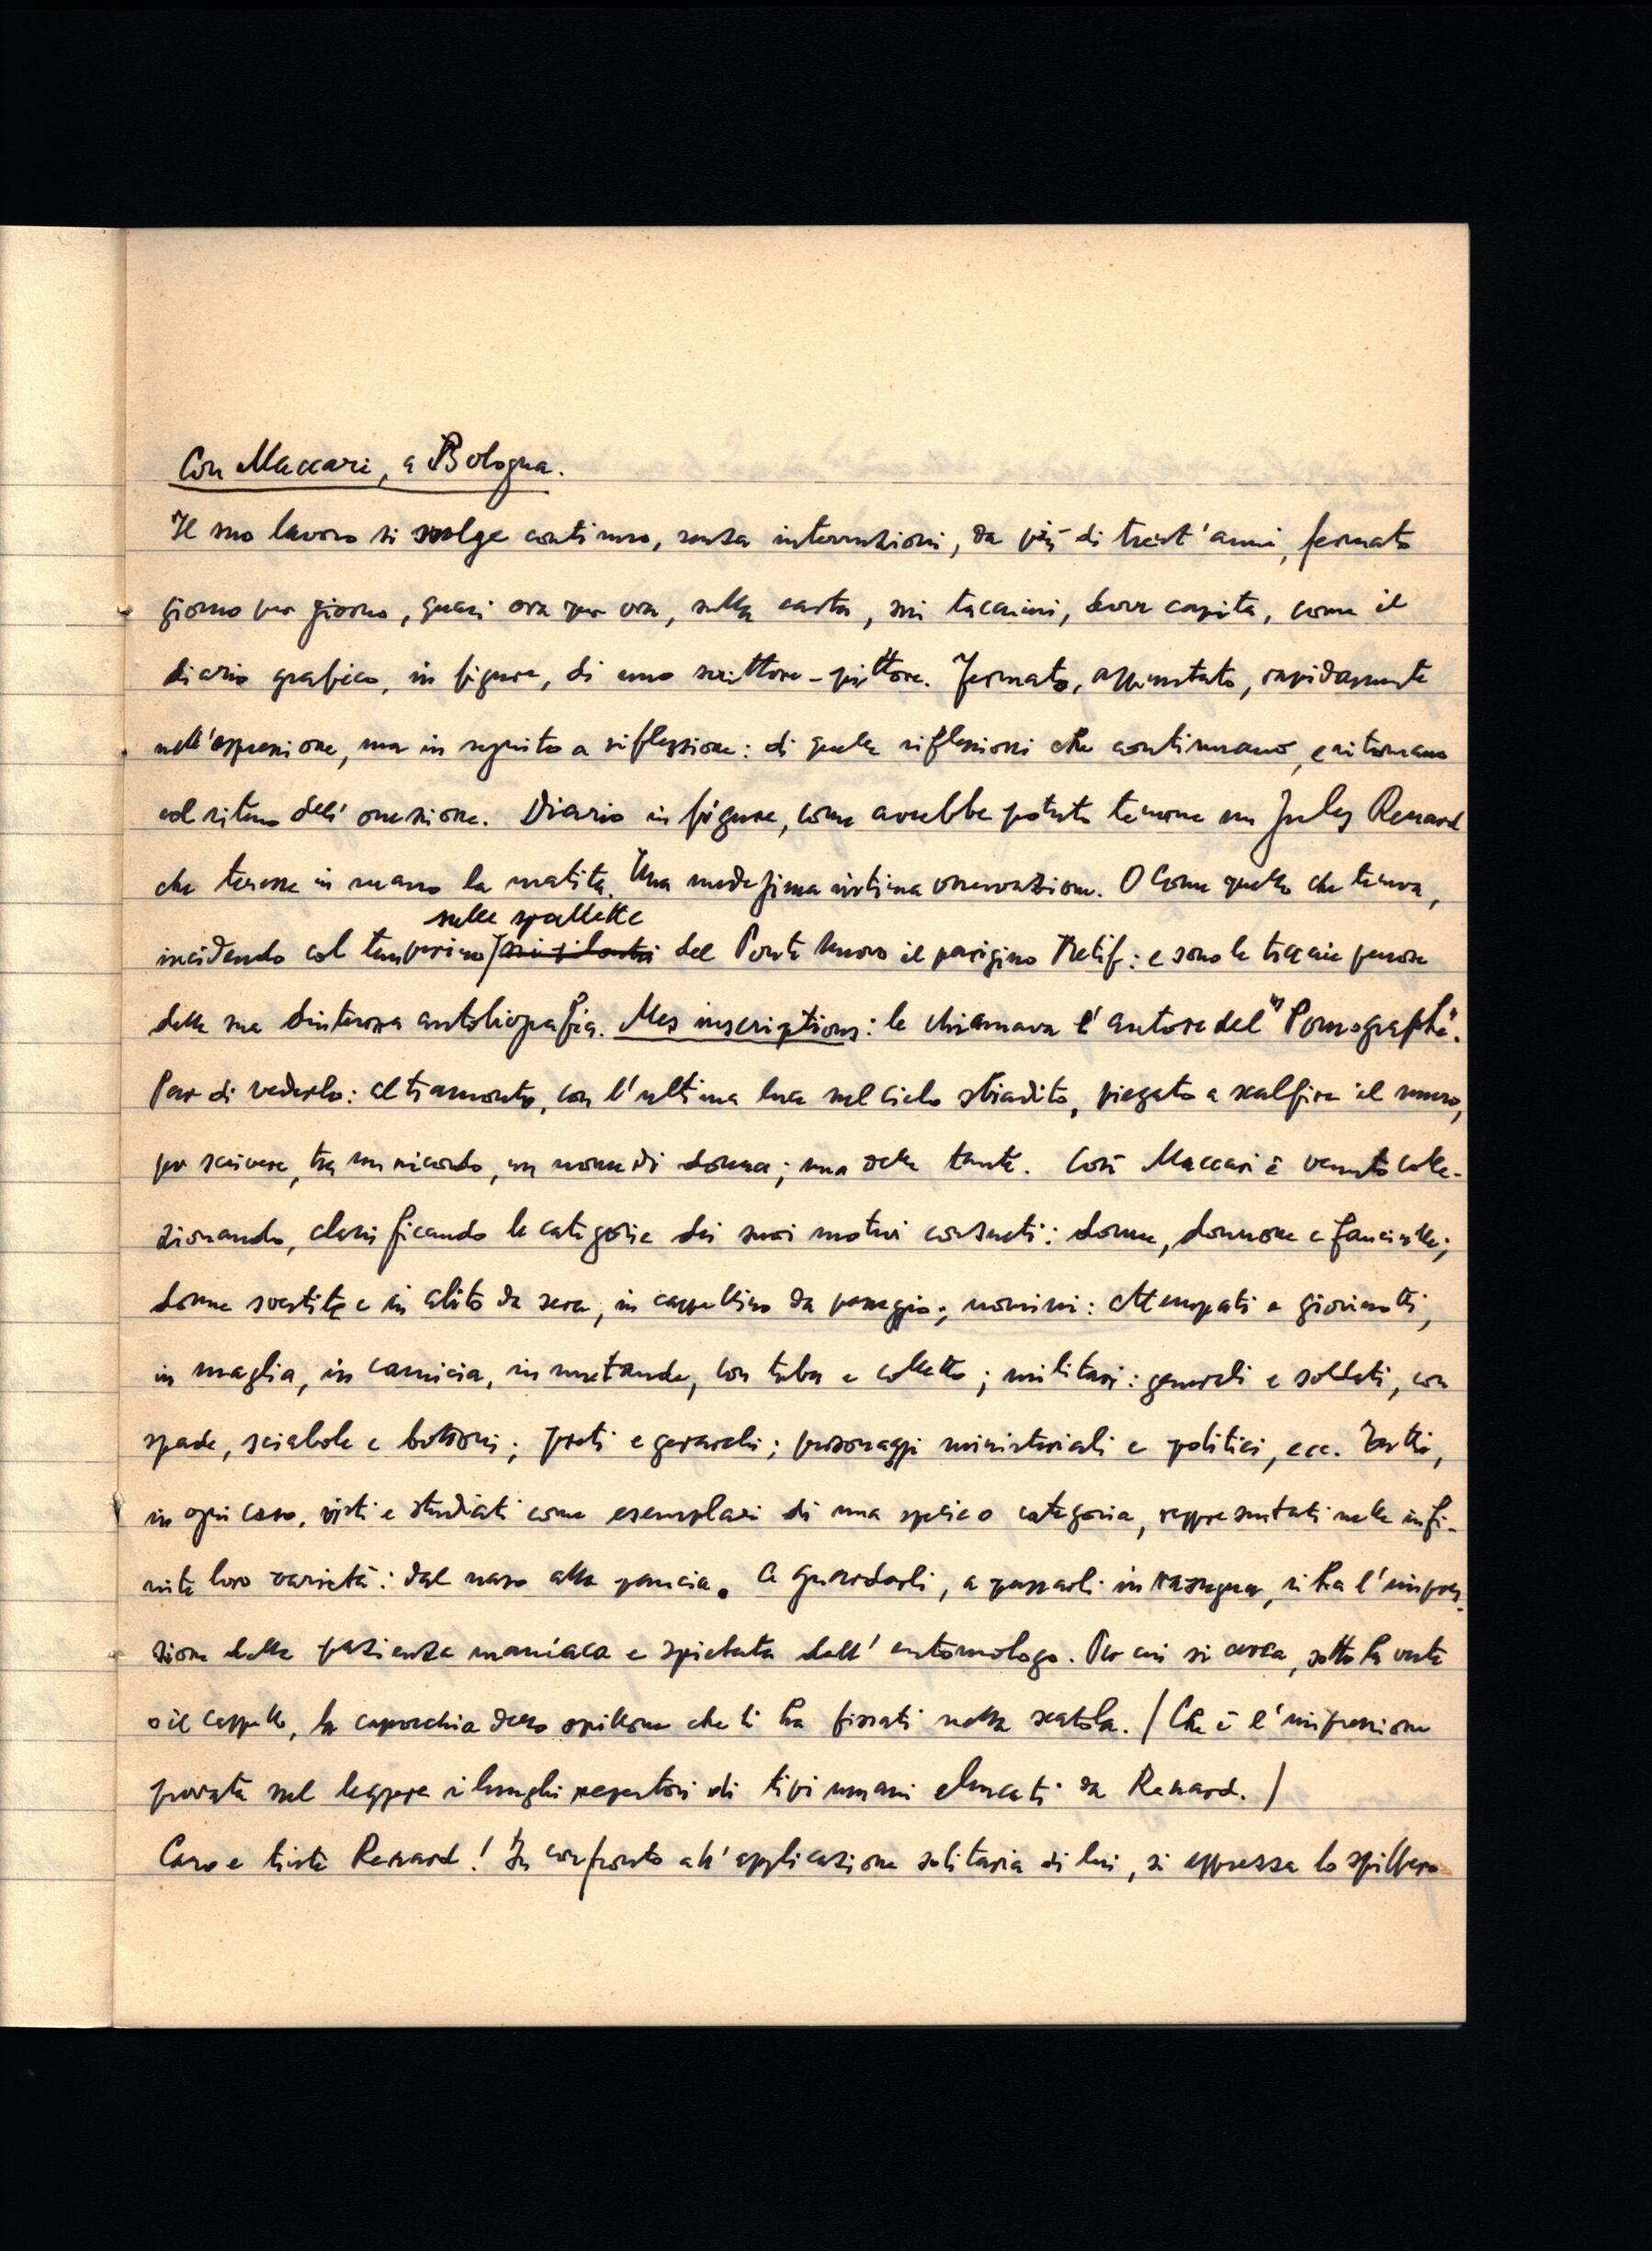 Con Maccari, a Bologna.
Il suo lavoro si svolge continuo, senza interruzioni, da più di trent'anni, fermato
giorno per giorno, quasi ora per ora, sulla carta, sui taccuini, dove capita, come il
diario grafico, in figure, di uno scrittore-pittore. Fermato, appuntato, rapidamente
nell'espressione, ma in seguito a riflessione: di quelle riflessioni che continuano, e ritornano
col ritmo dell'ossessione. Diario in figure, come avrebbe potuto tenerne un Jules Renard
che tenesse in mano la matita. Una medesima istintiva osservazione. O come quello che teneva,
sulle spallette
incidendo col temperino del Ponte Nuovo il parigino Retif: e sono le tracce
della sua autobiografia. Mes inscriptions: le chiamava l'autore del "Pornographe".
Par di vederlo: al tramonto, con l'ultima luce nel cielo sbiadito, piegato a scalfire il muro,
per scrivere, tra un ricordo, un nome di donna; una delle tante. Così Maccari è venuto colle-
zionando, classificando le categorie dei suoi motivi consueti: donne, donnone e fanciulle;
donne svestite e in abito da sera, in cappellino da passeggio; uomini: attempati e giovinotti,
in maglia, in camicia, in mutande, con tuba e colletto; militari: generali e soldati, con
spade, sciabole e bottoni; preti e gerarchi; personaggi ministeriali e politici, ecc. Tutti,
in ogni caso, visti e studiati come esemplari di una specie o categoria, rappresentati nelle infi-
nite loro varietà: dal naso alla pancia. A guardarli, a passarli in rassegna, si ha l'impres-
sione della pazienza maniaca e spietata dell'entomologo. Per cui si cerca, sotto la veste
o il cappello, la capocchia dello spillone che li ha fissati nella scatola. / Che è l'impressione
provata nel leggere i lunghi repertori di tipi umani elencati da Renard. /
Caro e triste Renard! In confronto all'applicazione solitaria di lui, si apprezza lo